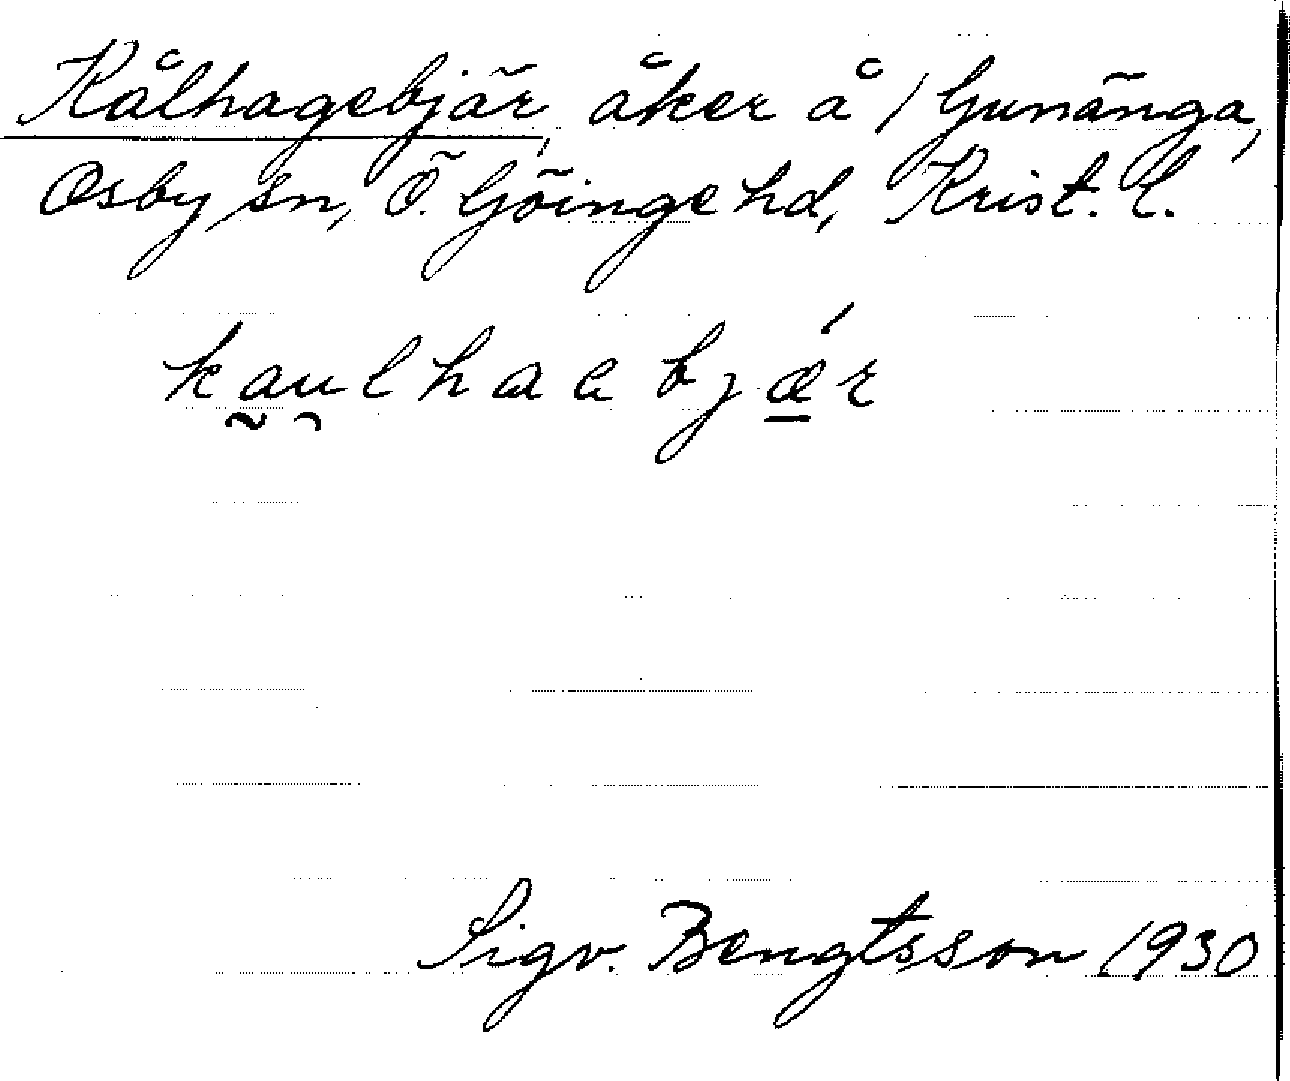 Kålhagebjär, åker å 1 Gunänga,
Osby sn, Ö. Göinge hd, Krist. l.
kaulhaabjǽr
Sigv. Bengtsson 1930